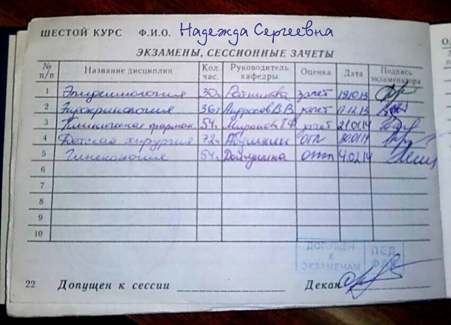 ШЕСТОЙ КУРС Ф.И.О. Надежда Сергеевна
ЭКЗАМЕНЫ, СЕССИОННЫЕ ЗАЧЕТЫ
№ п/п Название дисциплин Кол. час. Руководитель кафедры Оценка Дата Подпись экзаменатора
1 Эпидемиология зачет
2 Эндокринология зачет
3 Клиническая фармак 54ч зачет 21.01.14
4 Детская хирургия 72ч отл
5 Гинекология 54ч отл 4.02.14
6
7
8
9
10
ДОПУЩЕН К ЭКЗАМЕНАМ
ПЕД ФАК
22 Допущен к сессии Декан